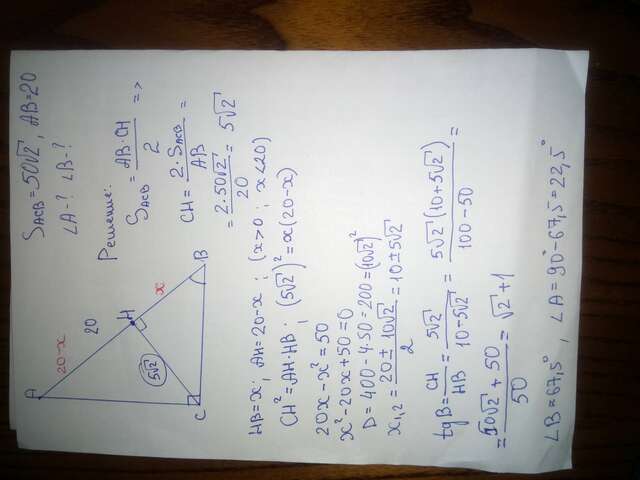 S_ACB = 50√2, AB = 20
∠A-? ∠B-?
Решение:
S_ACB = AB·CH / 2 =>
CH = 2·S_ACB / AB =
= 2·50√2 / 20 = 5√2
A
20-x
20
H
x
5√2
C
B
HB = x; AH = 20-x; (x>0; x<20)
CH² = AH·HB; (5√2)² = x(20-x)
20x - x² = 50
x² - 20x + 50 = 0
D = 400 - 4·50 = 200 = (10√2)²
x₁,₂ = 20 ± 10√2 / 2 = 10 ± 5√2
tg B = CH / HB = 5√2 / 10-5√2 = 5√2(10+5√2) / 100-50 =
= 50√2 + 50 / 50 = √2 + 1
∠B = 67,5°, ∠A = 90° - 67,5° = 22,5°